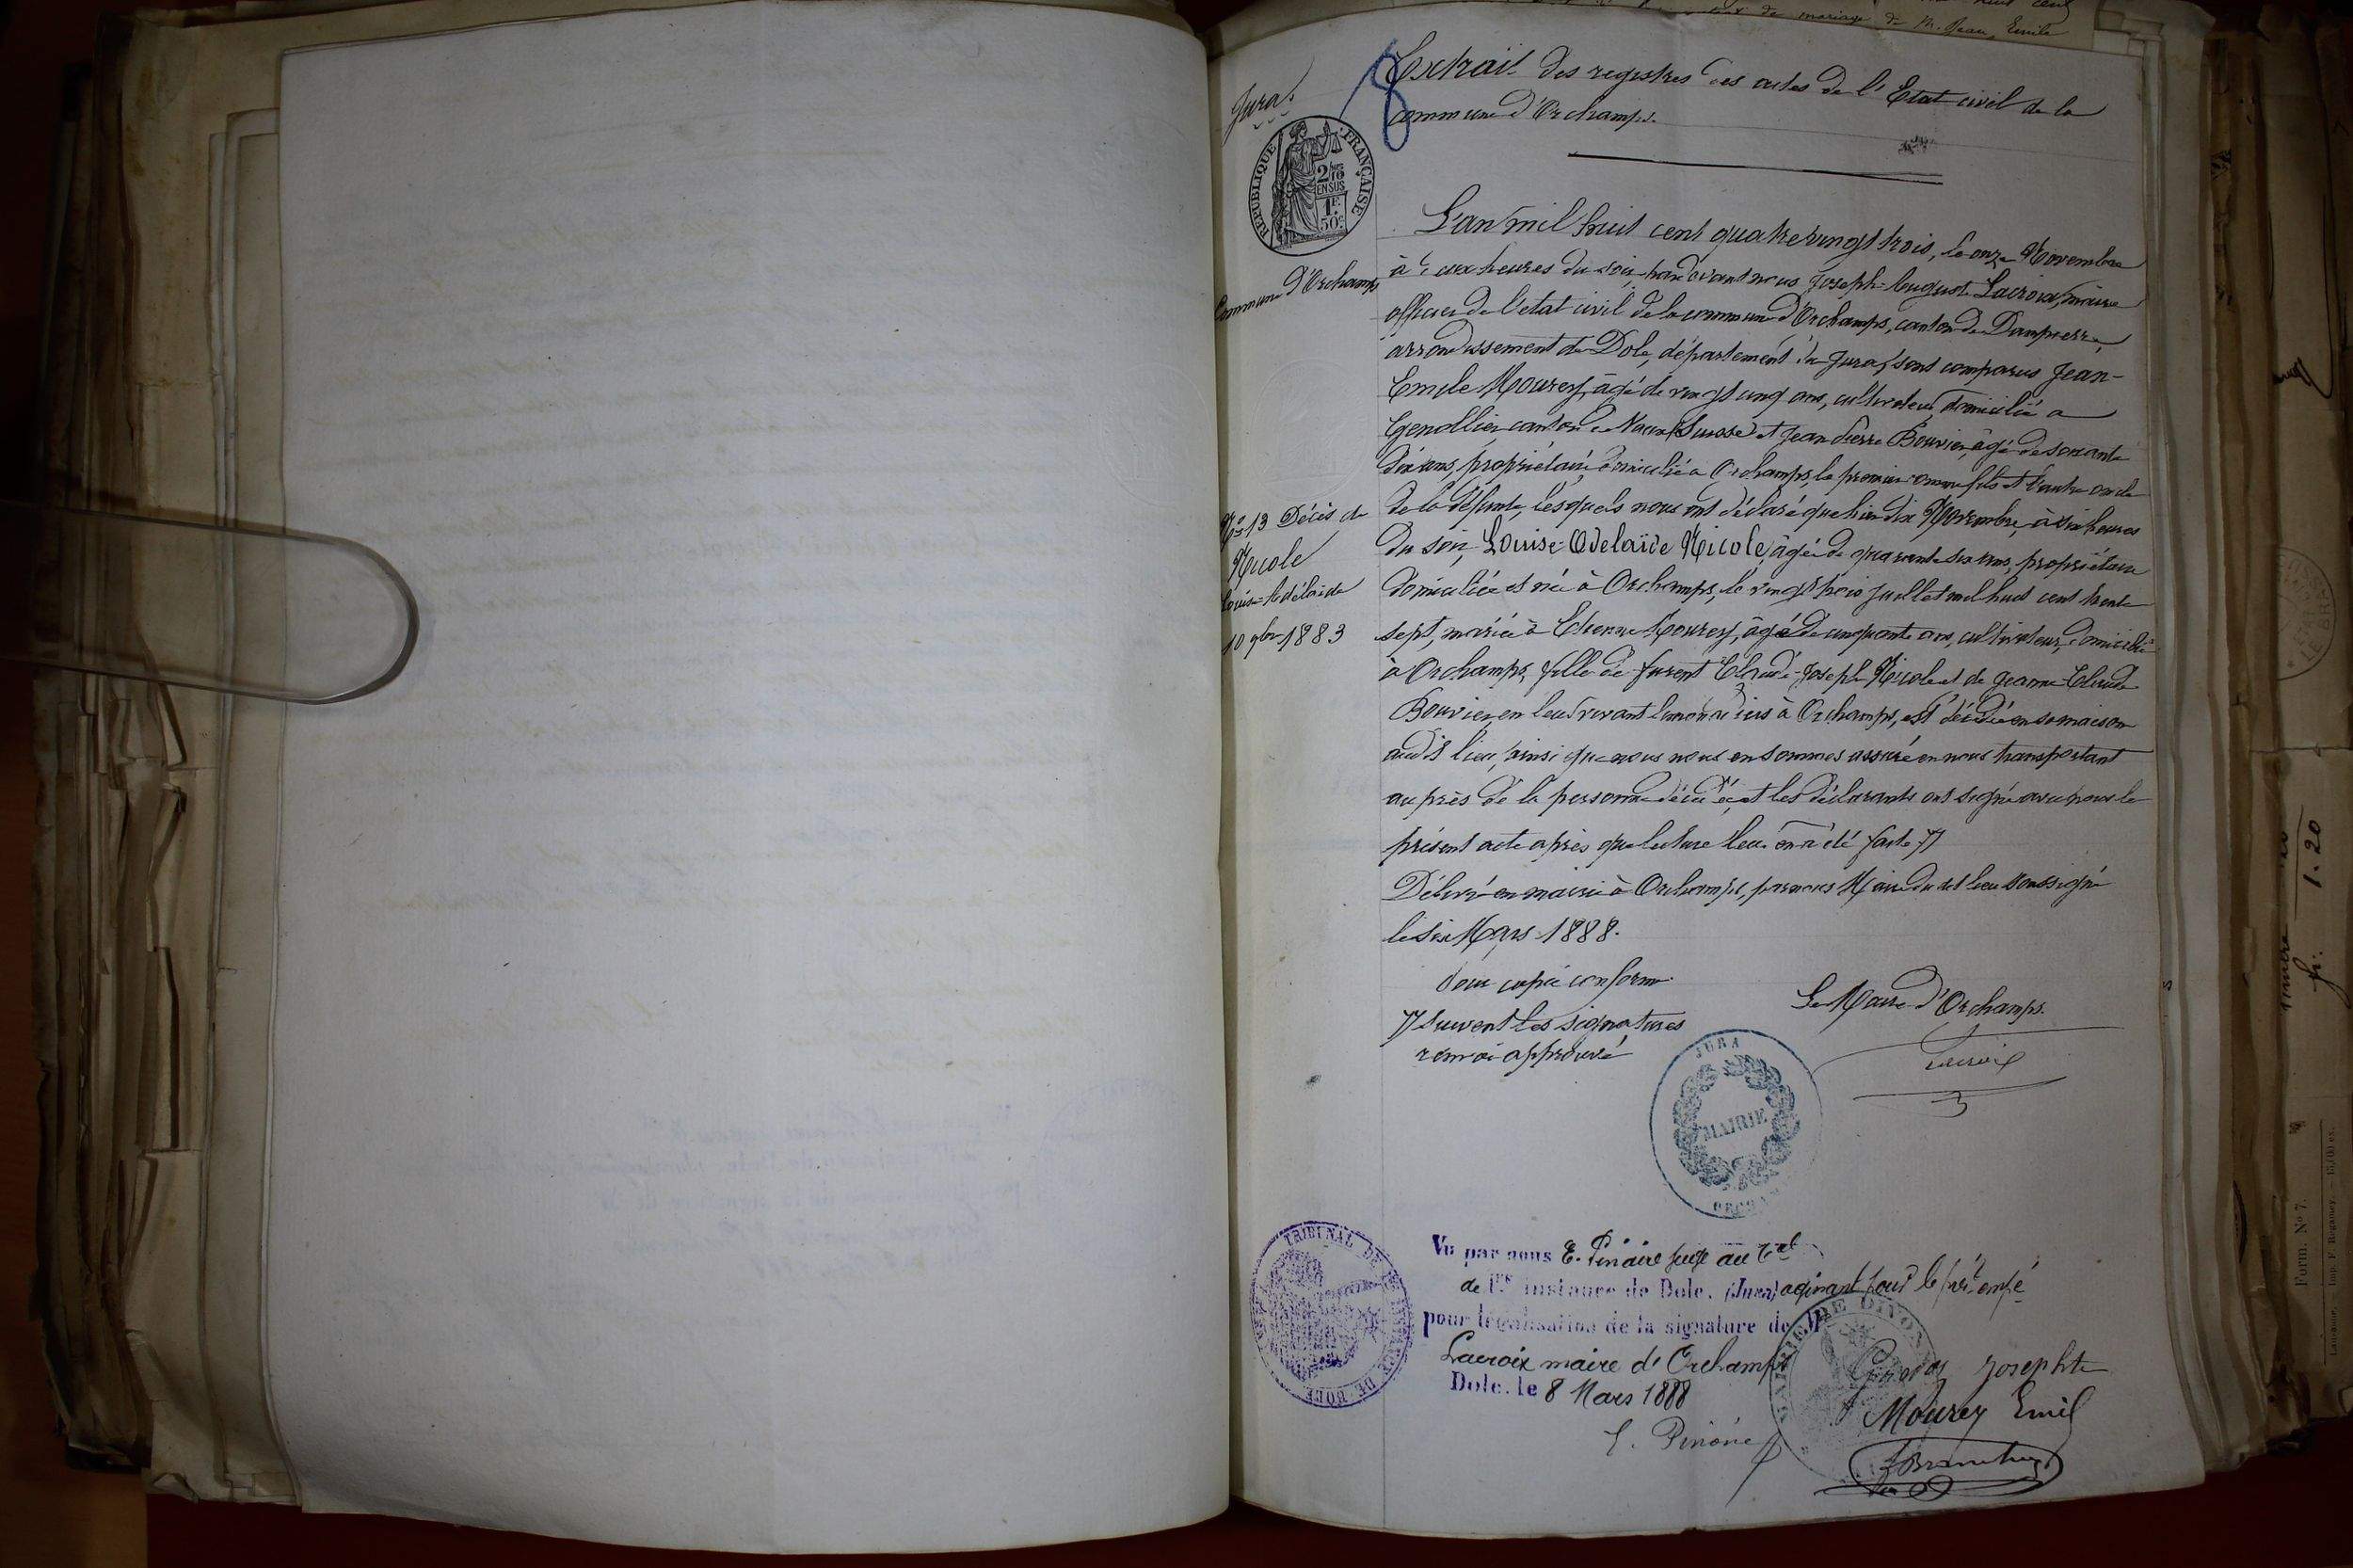 de mariage de M. Jean Emile
Jura.
8
Extrait des registres des actes de l'Etat civil de la
commune d'Orchamps.
RÉPUBLIQUE FRANÇAISE
2/10
EN SUS
1F
50c
Commune d'Orchamps
L'an mil huit cent quatre vingt trois, le onze Novembre
à heures du soir, par devant nous Joseph-August Lacroix, maire
officier de l'état civil de la commune d'Orchamps, canton de Dampierre,
arrondissement de Dole, département du Jura, sont comparus Jean-
Emile Mourey, âgé de vingt cinq ans, cultivateur, domicilié à
Genollier canton de (Suisse) et Jean Pierre Bouvier, âgé de soixante
dix ans, propriétaire, domicilié à Orchamps, le premier comme fils et l'autre oncle
de la défunte, lesquels nous ont déclaré que hier dix Novembre, à six heures
du soir, Louise-Adelaïde Nicole, âgée de quarante six ans, propriétaire
domiciliée et née à Orchamps, le vingt trois Juillet mil huit cent trente
sept, mariée à Etienne Mourey, âgé de cinquante ans, cultivateur, domicilié
à Orchamps, fille de furent Claude-Joseph Nicole et de Jeanne-Claude
Bouvier, en leur vivant à Orchamps, est décédée en sa maison
audit lieu, ainsi que nous nous en sommes assuré en nous transportant
auprès de la personne décédée, et les déclarants ont signé avec nous le
présent acte après que lecture leur en a été faite
Délivré en mairie à Orchamps, par nous Maire du dit lieu soussigné
le six Mars 1888.
No 13 Décès de
Nicole
Louise-Adélaïde
10 9bre 1883
Pour copie conforme
suivent les signatures
renvoi approuvé
Le Maire d'Orchamps.
Lacroix
JURA
MAIRIE
TRIBUNAL DE 1RE INSTANCE DE DOLE
Vu par nous E. Pinaire juge au Tal
de 1re Instance de Dole. (Jura) agissant pour le prt empé
pour légalisation de la signature de M
Lacroix maire d'Orchamps
Dole. le 8 Mars 1888
E. Pinaire
Josephte
Mourey Emil
1.20
fr.
Form. No 7.